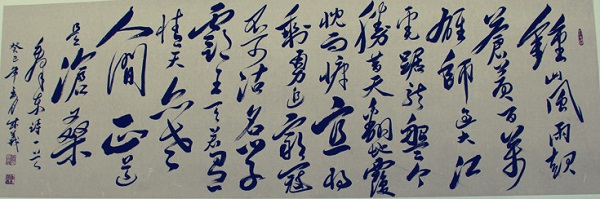 鍾山風雨起
蒼黃百萬
雄師過大江
虎踞龍盤今
勝昔天翻地覆
慨而慷宜將
剩勇追窮寇
不可沽名學
霸王天若有
情天亦老
人間正道
是滄桑
毛澤東詩一首
癸巳年